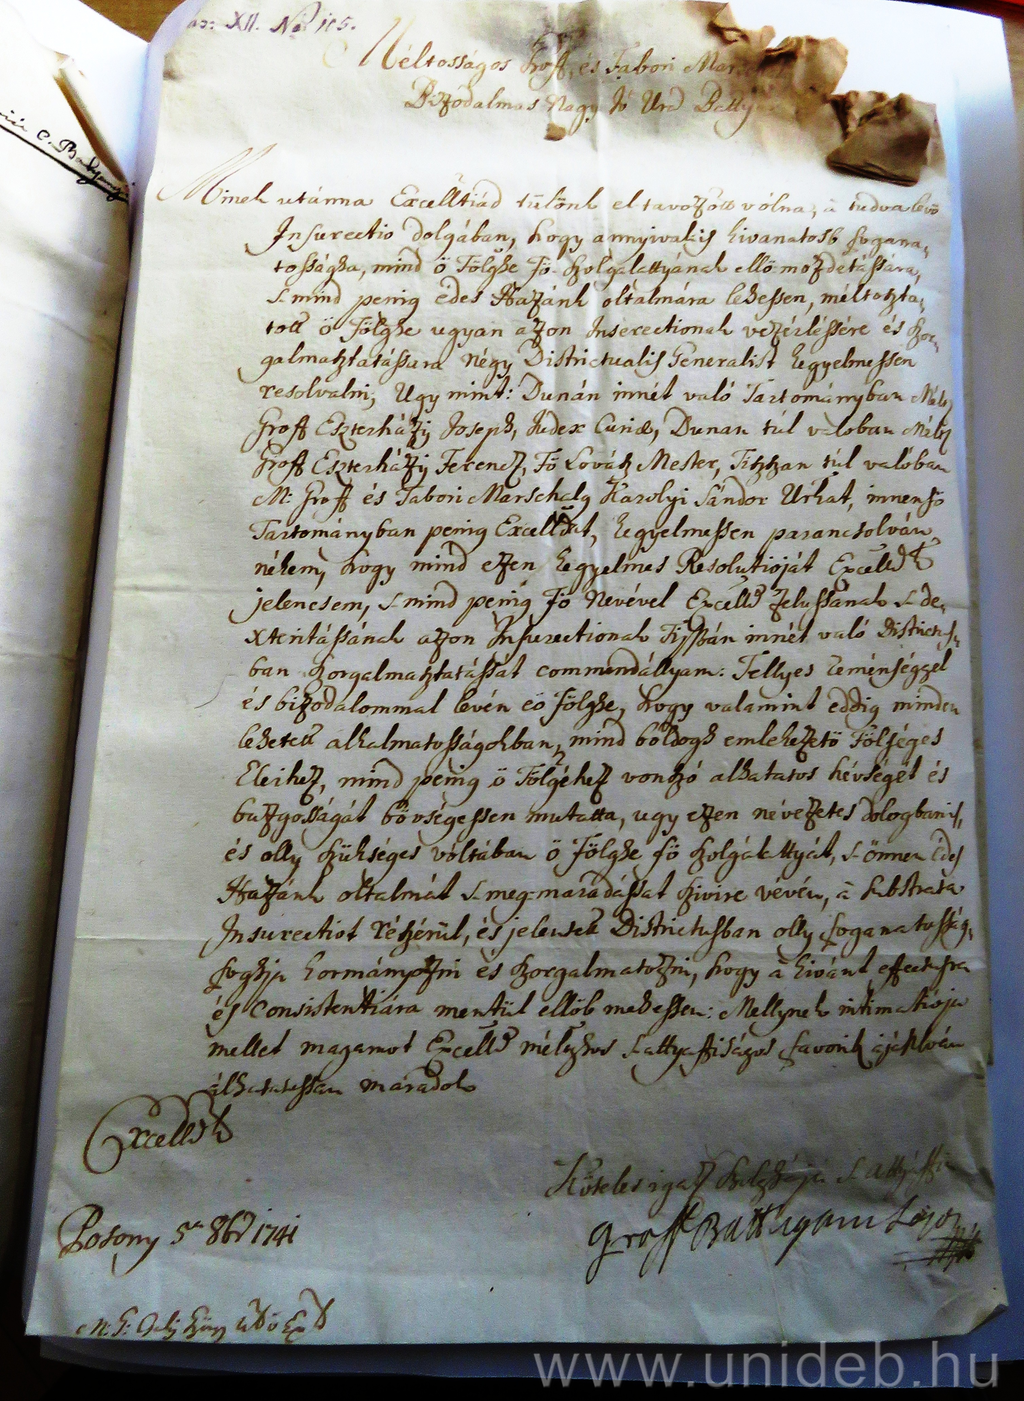 XII. No 105.
C. Battyany
Méltosságos Groff, és Tabori Mar
Bizodalmas Nagy Jó Urd Batty
Minek utánna Excelltiád tülönk el tavozott vólna, à tudva levö
Insurectio dolgában, hogy annyivalis kivanatosb fogana,
tosságha, mind ö Fölghe Fö Szolgalattyának ellö mozdétássára,
s mind penig édes Hazánk oltalmára lehessen, méltoztá,
tott ö Fölghe ugyan azon Inserectionak vezérléssére és Szor,
galmaztatássara Négy Districtualis Generalist kegyelmessen
resolvalni, Ugy mint: Dunán innét való Tartományban Mélt
Groff Eszterházÿ Joseph, Judex Curiæ, Dunan túl valoban Mélt
Groff Eszterházÿ Ferencz, Fö Lovász Mester, Tiszan túl valóban
M: Groff és Tabori Marschalg Karolyi Sándor Urkat, innensö
Tartományban penig Excelldat, kegyelmessen parancsolván
nékem, hogy mind ezen kegyelmes Resolutioját Excelldk
jelencsem, s mind penig Fö Nevével Excelld zelussának s de,
xteritássának azon Insurectionak Tiszán innét való Districtus,
ban Szorgalmaztatássat commendállyam: Tellyes reménséggel
és bizodalommal levén eö Fölghe, hogy valamint eddig minden
lehetett alkalmatosságokban, mind bóldogh emlekezetö Fölséges
Eleihez, mind penig ö Fölgéhez vonzó alhatatos hévségét és
buzgosságát bövségessen mutatta, ugy ezen névezetes dologbanis,
és olly szükséges vóltában ö Fölghe fö szolgálattyát, s önnen Édes
Hazánk oltalmát s meg maradássat Szivire vévén, à substrata
Insurectiot részérül, és jelentett Districtusban olly foganatosság,
foghja kormánÿozni és Szorgalmatozni, hogy à kivánt effectusra
és Consistentiára mentül ellöb mehessen: Mellynek intimatioja
mellet magamot Excelld méltghos s attyaffiságos favorik ajánlván
álhatatossan maradok
Excelldk
Köteles igaz szolghája s Attyaffia
Groff Battyani Lajos
Posony 5a 8br 1741